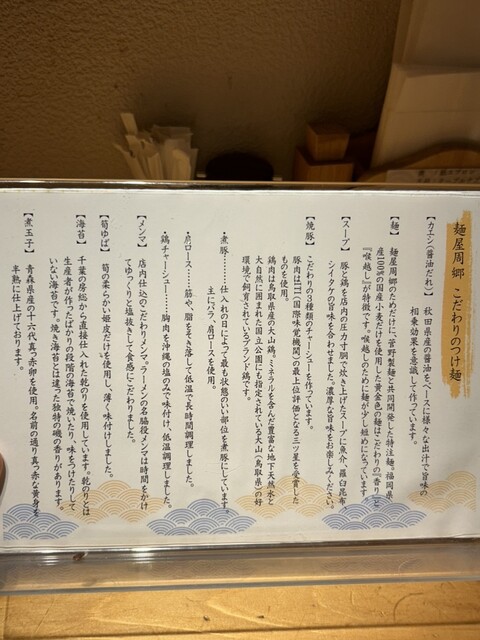 麺屋周郷 こだわりのつけ麺
【カエシ(醤油だれ)】 秋田県産の醤油をベースに様々な出汁で旨味の
相乗効果を意識して作っています。
【麺】 麺屋周郷のためだけに、菅野製麺と共同開発した特注麺。福岡県
産100%の国産小麦だけを使用した黄金色の麺はこだわりの『香り』と
『喉越し』が特徴です。喉越しのために麺が少し短めになっています。
【スープ】 豚と鶏を店内の圧力寸胴で炊き上げたスープに魚介、羅臼昆布
シイタケの旨味を合わせました。濃厚な旨味をお楽しみください。
【焼豚】 こだわりの3種類のチャーシューを作っています。
豚肉はITI(国際味覚機関)の最上位評価となる三ツ星を受賞した
ものを使用。
鶏肉は鳥取県産の大山鶏。ミネラルを含んだ豊富な地下天然水と
大自然に囲まれた国立公園にも指定されている大山(鳥取県)の好
環境で飼育されているブランド鶏です。
・煮豚……仕入れの日によって最も状態のいい部位を煮豚にしています。
主にバラ、肩ロースを使用。
・肩ロース……筋や、脂をそぎ落として低温で長時間調理しました。
・鶏チャーシュー……胸肉を沖縄の塩のみで味付け、低温調理しました。
【メンマ】 店内仕込のこだわりメンマ。ラーメンの名脇役メンマは時間をかけ
てゆっくりと塩抜きして食感にこだわりました。
【筍ゆば】 筍の柔らかい姫皮だけを使用し、薄く味付けしました。
【海苔】 千葉の房総から直接仕入れた乾のりを使用しています。乾のりとは
生産者が作ったばかりの段階の海苔で焼いたり、味をつけたりして
いない海苔です。焼き海苔とは違った独特の磯の香りがあります。
【煮玉子】 青森県産の十六代真っ赤卵を使用。名前の通り真っ赤な黄身を
半熟に仕上げております。